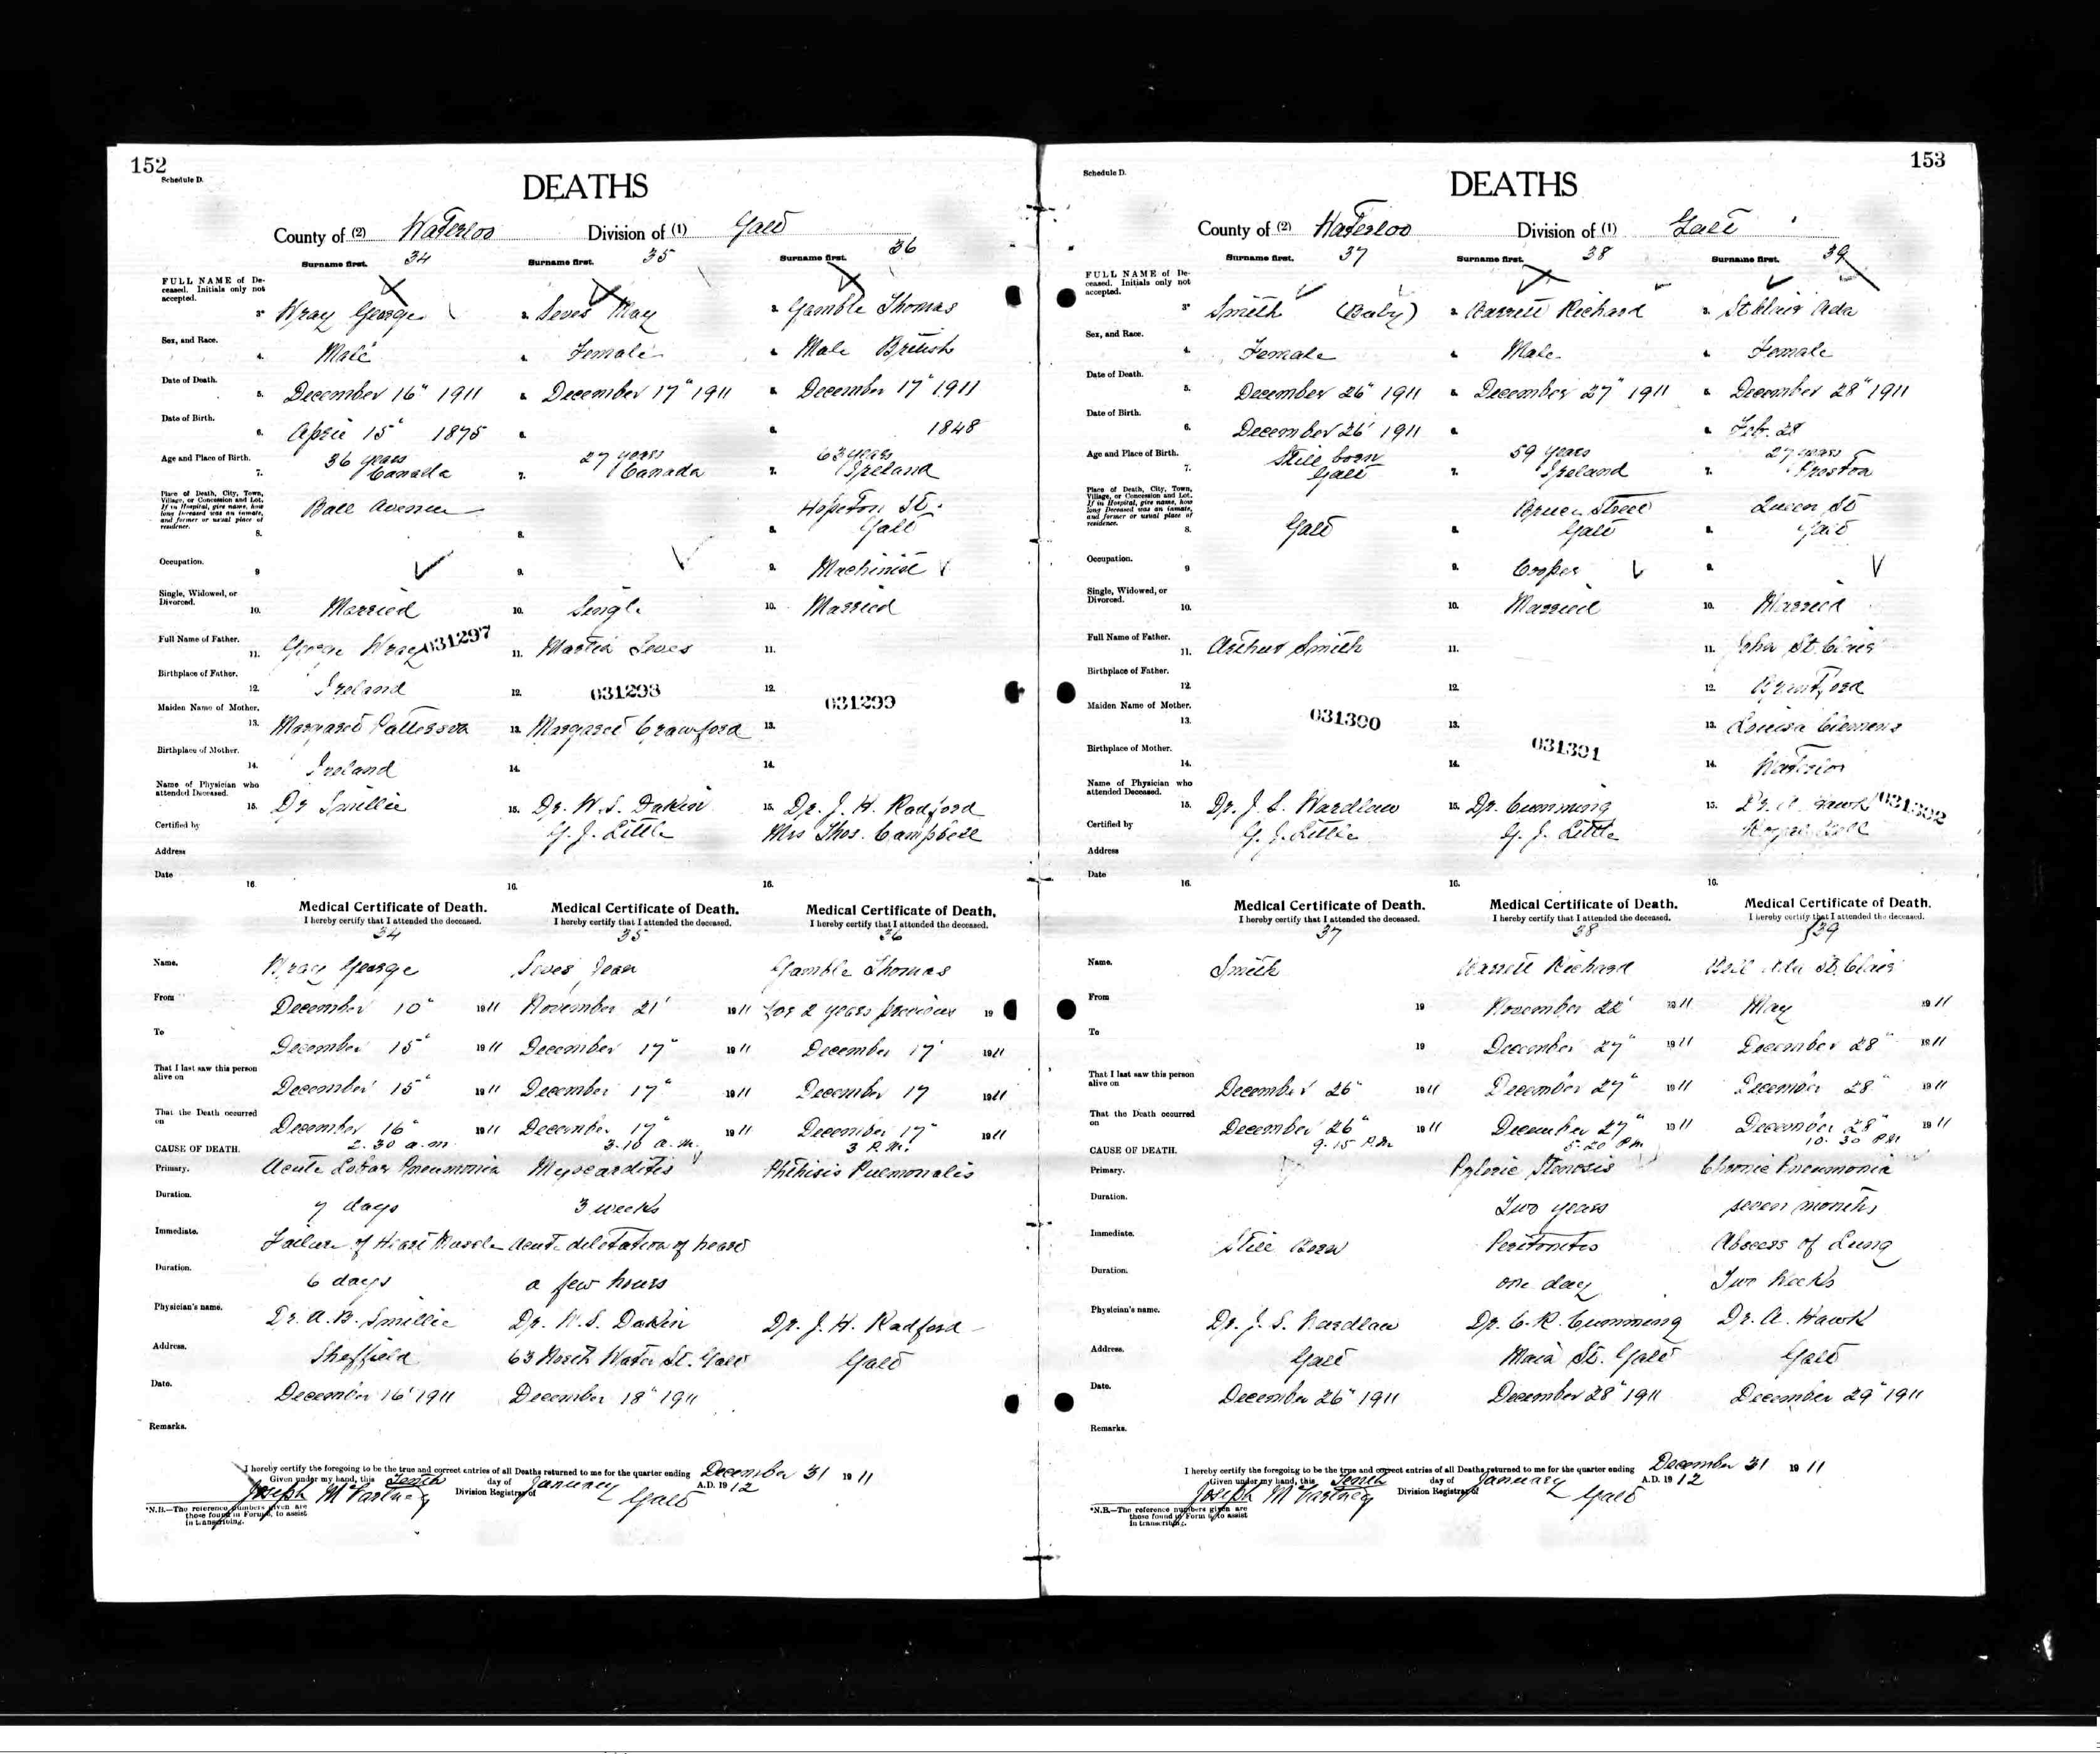 152
Schedule D.
DEATHS
County of (2) Waterloo Division of (1) Galt
Surname first. 34 Surname first. 35 Surname first. 36
FULL NAME of De-
ceased. Initials only not
accepted.
3. Wray George 3. May 3. Gamble Thomas
Sex, and Race.
4. Male 4. Female 4. Male British
Date of Death.
5. December 16" 1911 5. December 17" 1911 5. December 17" 1911
Date of Birth.
6. April 15" 1875 6. 6. 1848
Age and Place of Birth. 36 years 27 years 63 years
7. Canada 7. Canada 7. Ireland
Place of Death, City, Town,
Village, or Concession and Lot.
If in Hospital, give name, how
long Deceased was an inmate,
and former or usual place of
residence.
Ball Avenue Hopeton St.
8. 8. 8. Galt
Occupation.
9 9. 9. Machinist
Single, Widowed, or
Divorced.
10. Married 10. Single 10. Married
Full Name of Father.
11. George Wray 031297 11. Martin 11.
Birthplace of Father.
12. Ireland 12. 031298 12. 031299
Maiden Name of Mother.
13. Margaret Patterson 13. Margaret Crawford 13.
Birthplace of Mother.
14. Ireland 14. 14.
Name of Physician who
attended Deceased.
15. Dr Smillie 15. Dr. W. S. Dakin 15. Dr. J. H. Radford
Certified by G. J. Little Mrs Thos. Campbell
Address
Date
16 16. 16.
Medical Certificate of Death. Medical Certificate of Death. Medical Certificate of Death.
I hereby certify that I attended the deceased. I hereby certify that I attended the deceased. I hereby certify that I attended the deceased.
34 35 36
Name. Wray George Jean Gamble Thomas
From December 10" 1911 November 21' 1911 For 2 years previous 19
To December 15" 1911 December 17" 1911 December 17' 1911
That I last saw this person
alive on December 15" 1911 December 17" 1911 December 17 1911
That the Death occurred
on December 16" 1911 December 17" 1911 December 17" 1911
CAUSE OF DEATH. 2.30 a.m. 3.10 a.m. 3 P.M.
Primary. Acute Lobar Pneumonia Myocarditis Phthisis Pulmonalis
Duration. 7 days 3 weeks
Immediate. Failure of Heart Muscle Acute dilotation of heart
Duration. 6 days a few hours
Physician's name. Dr. A. B. Smillie Dr. W. S. Dakin Dr. J. H. Radford
Address. Sheffield 63 North Water St. Galt Galt
Date. December 16' 1911 December 18" 1911
Remarks.
I hereby certify the foregoing to be the true and correct entries of all Deaths returned to me for the quarter ending December 31 1911
Given under my hand, this Tenth day of January A.D. 1912
Joseph McCartney Division Registrar of Galt
*N.B.—The reference numbers given are
those found in Form 6, to assist
in transcribing.
153
Schedule D.
DEATHS
County of (2) Waterloo Division of (1) Galt
Surname first. 37 Surname first. 38 Surname first. 39
FULL NAME of De-
ceased. Initials only not
accepted.
3. Smith (Baby) 3. Richard 3. St Clair Ada
Sex, and Race.
4. Female 4. Male 4. Female
Date of Death.
5. December 26" 1911 5. December 27" 1911 5. December 28" 1911
Date of Birth.
6. December 26' 1911 6. 6. Feb. 28
Age and Place of Birth. Still born 59 years 27 years
7. Galt 7. Ireland 7. Preston
Place of Death, City, Town,
Village, or Concession and Lot.
If in Hospital, give name, how
long Deceased was an inmate,
and former or usual place of
residence.
Bruce Street Queen St
8. Galt 8. Galt 8. Galt
Occupation.
9 9. Cooper 9.
Single, Widowed, or
Divorced.
10. 10. Married 10. Married
Full Name of Father.
11. Arthur Smith 11. 11. John St. Clair
Birthplace of Father.
12. 12. 12. Brantford
Maiden Name of Mother.
13. 031300 13. 13. Louisa Clemens
Birthplace of Mother.
14. 14. 031301 14. Waterloo
Name of Physician who
attended Deceased.
15. Dr. J. S. Wardlaw 15. Dr. Cumming 15. Dr. A. Hawk 031302
Certified by G. J. Little G. J. Little
Address
Date
16. 16. 16.
Medical Certificate of Death. Medical Certificate of Death. Medical Certificate of Death.
I hereby certify that I attended the deceased. I hereby certify that I attended the deceased. I hereby certify that I attended the deceased.
37 38 39
Name. Smith Richard Ada St. Clair
From 19 November 22' 1911 May 1911
To 19 December 27" 1911 December 28" 1911
That I last saw this person
alive on December 26" 1911 December 27" 1911 December 28" 1911
That the Death occurred
on December 26" 1911 December 27" 1911 December 28" 1911
CAUSE OF DEATH. 9.15 P.M. 5.20 P.M. 10.30 P.M.
Primary. Pyloric Stenosis Chronic Pneumonia
Duration. Two years seven months
Immediate. Still Born Peritonitis Abscess of Lung
Duration. one day Two Weeks
Physician's name. Dr. J. S. Wardlaw Dr. C. R. Cumming Dr. A. Hawk
Address. Galt Main St. Galt Galt
Date. December 26" 1911 December 28" 1911 December 29" 1911
Remarks.
I hereby certify the foregoing to be the true and correct entries of all Deaths returned to me for the quarter ending December 31 1911
Given under my hand, this Tenth day of January A.D. 1912
Joseph McCartney Division Registrar of Galt
*N.B.—The reference numbers given are
those found in Form 6, to assist
in transcribing.